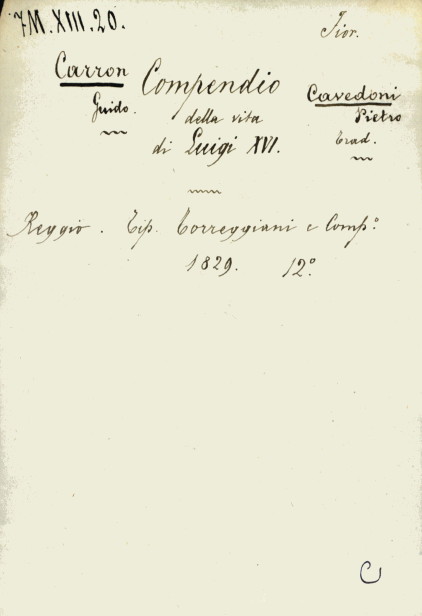 7M.XIII.20.
Fior.
Carron
Guido.
Compendio
della vita
di Luigi XVI.
Cavedoni
Pietro
trad.
Reggio. Tip. Torreggiani e Comp.º
1829. 12º.
C